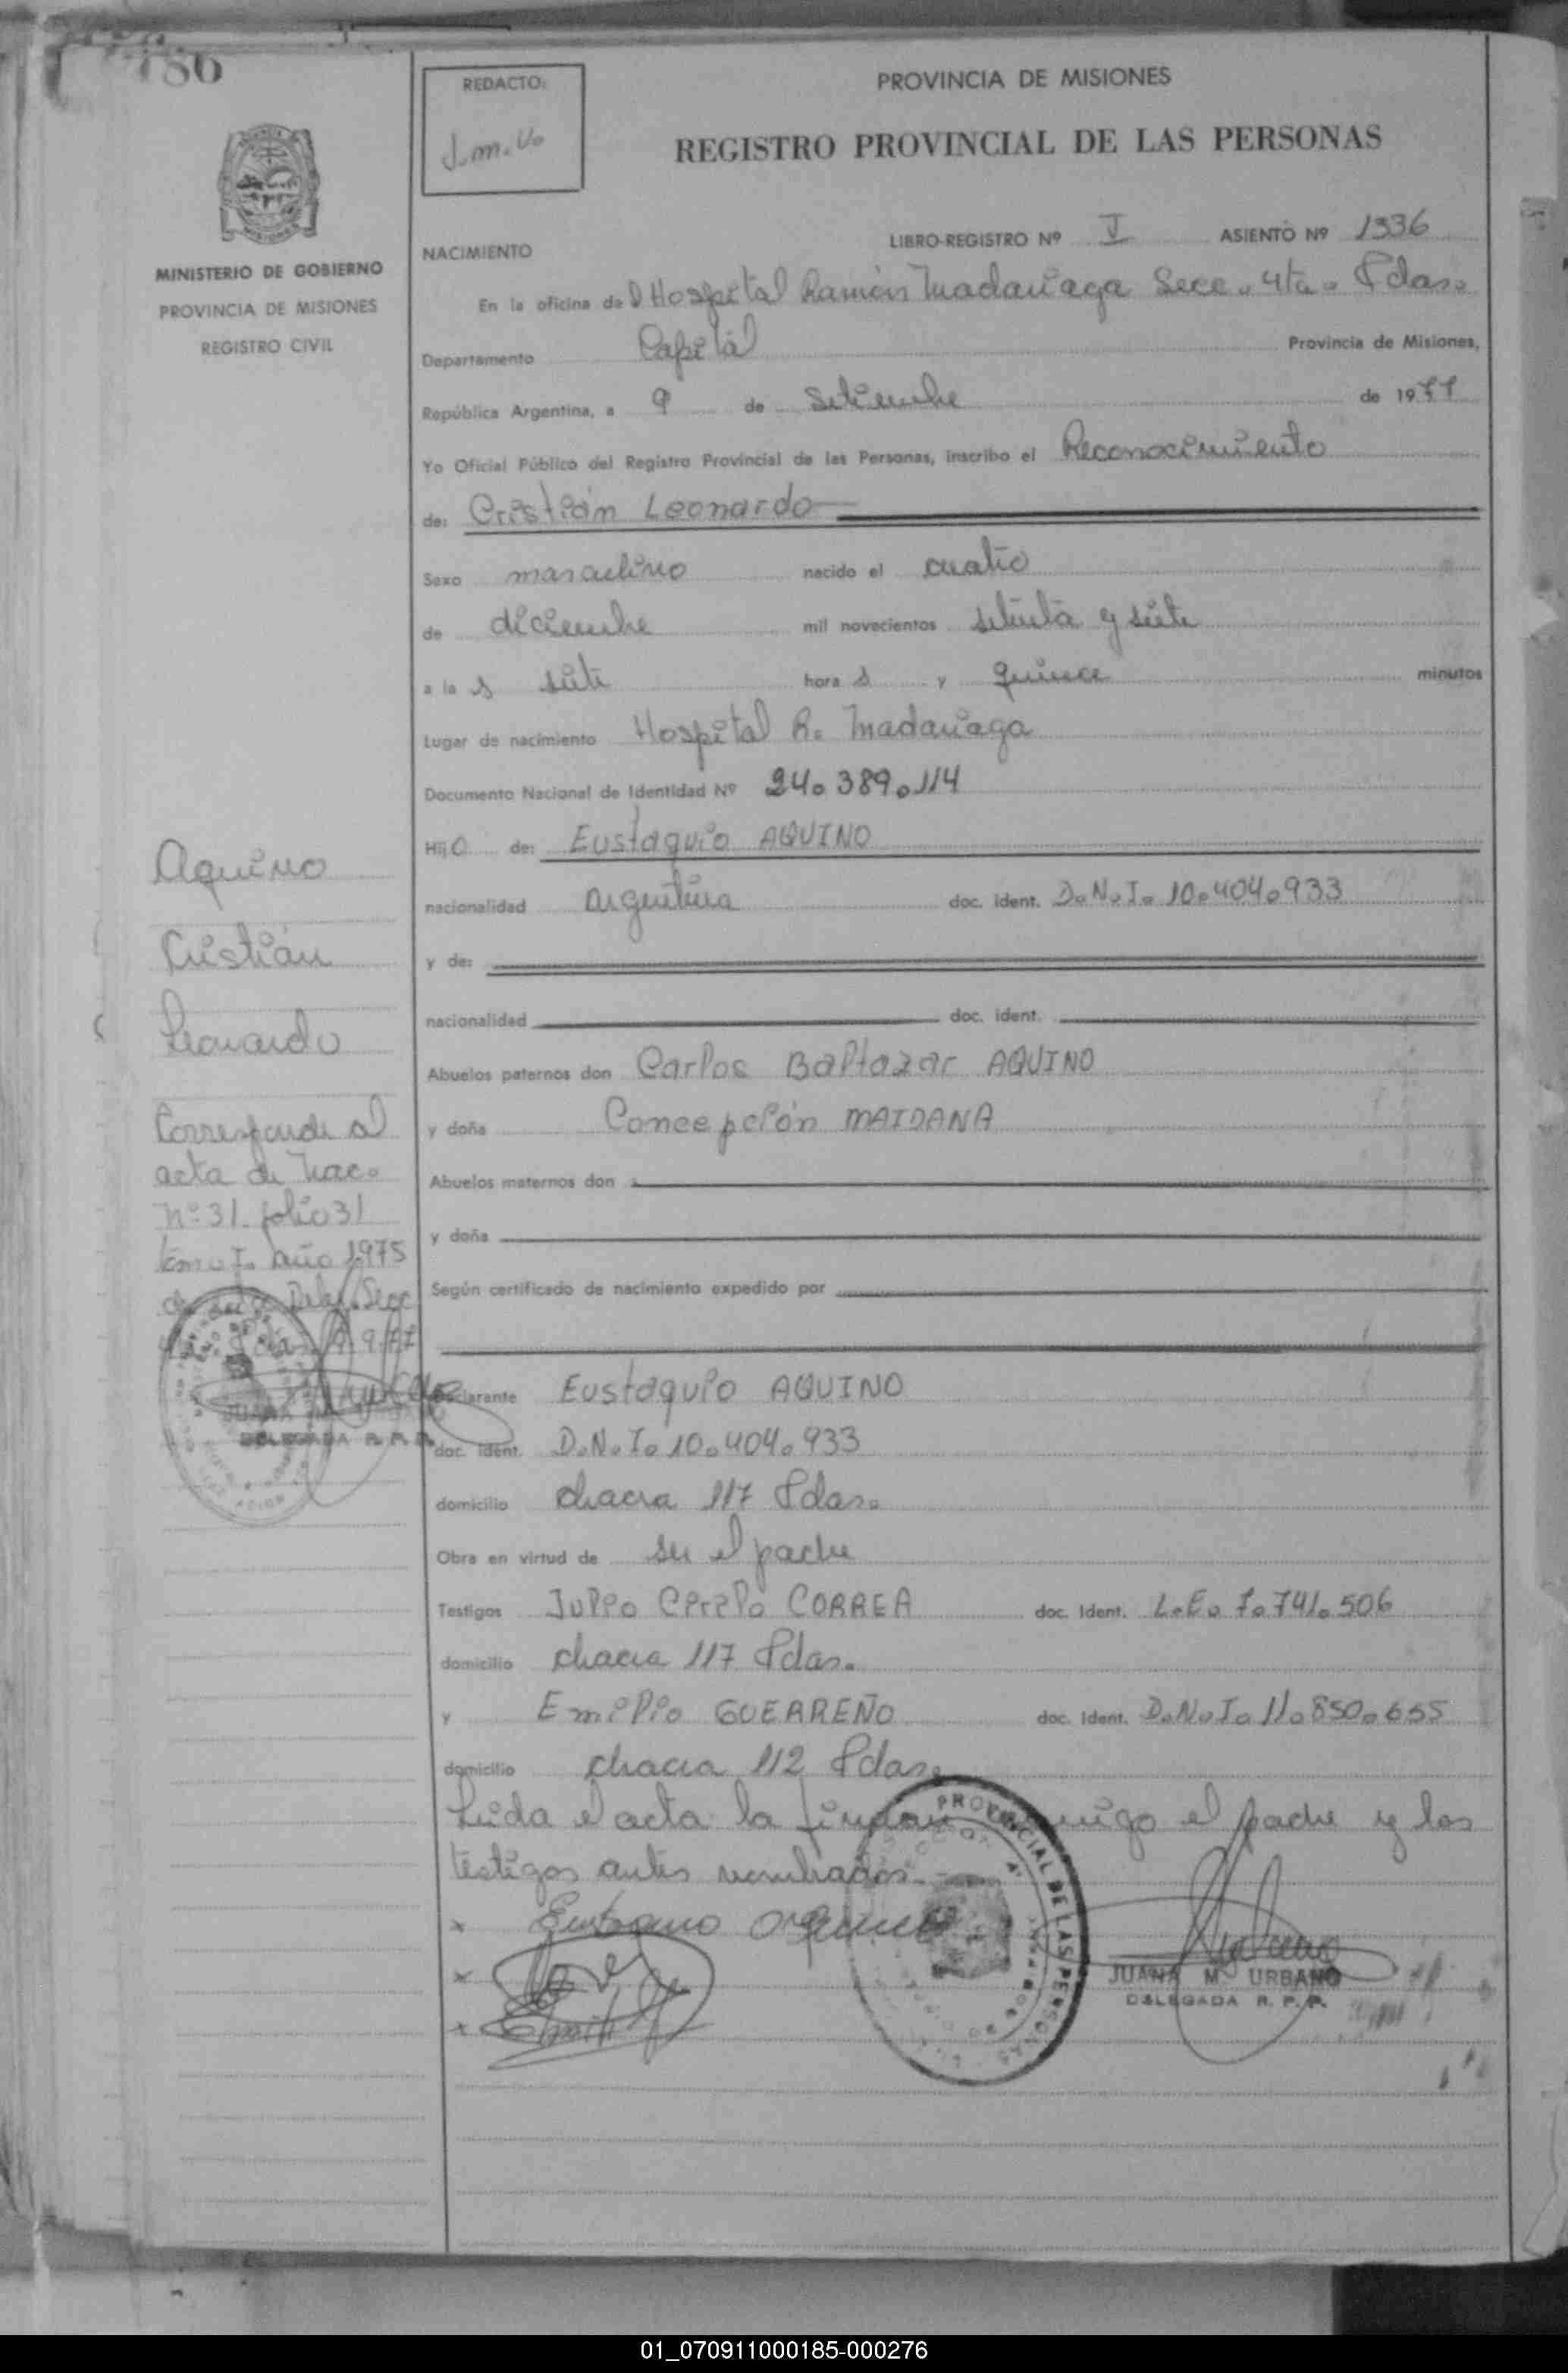 186
REDACTO:
J.m.U.
PROVINCIA DE MISIONES
REGISTRO PROVINCIAL DE LAS PERSONAS
MINISTERIO DE GOBIERNO
PROVINCIA DE MISIONES
REGISTRO CIVIL
NACIMIENTO
LIBRO-REGISTRO Nº V ASIENTO Nº 1336
En la oficina de D Hospital Ramón Madariaga Secc. 4ta. Pdas.
Departamento Capital Provincia de Misiones,
República Argentina, a 9 de Setiembre de 1977
Yo Oficial Público del Registro Provincial de las Personas, inscribo el Reconocimiento
de: Cristián Leonardo
Sexo masculino nacido el cuatro
de diciembre mil novecientos setenta y siete
a la s siete hora s y quince minutos
Lugar de nacimiento Hospital R. Madariaga
Documento Nacional de Identidad Nº 24.389.114
Hij o de: Eustaquio AQUINO
nacionalidad argentina doc. ident. D.N.I. 10.404.933
y de:
nacionalidad doc. ident.
Abuelos paternos don Carlos Baltazar AQUINO
y doña Concepción MAIDANA
Abuelos maternos don
y doña
Según certificado de nacimiento expedido por
Declarante Eustaquio AQUINO
doc. ident. D.N.I. 10.404.933
domicilio chacra 117 Pdas.
Obra en virtud de ser el padre
Testigos Julio Cirilo CORREA doc. ident. L.E. 7.741.506
domicilio chacra 117 Pdas.
y Emilio GUERREÑO doc. ident. D.N.I. 11.850.655
domicilio chacra 112 Pdas.
Leida el acta la firman conmigo el padre y los
testigos antes nombrados.
PROVINCIAL DE LAS PERSONAS
JUANA M. URBANO
DELEGADA R. P. P.
Aquino
Cristián
Leonardo
Corresponde al
acta de Nac.
Nº 31 folio 31
tomo I. año 1975
JUANA M. URBANO
DELEGADA R. P. P.
01_070911000185-000276